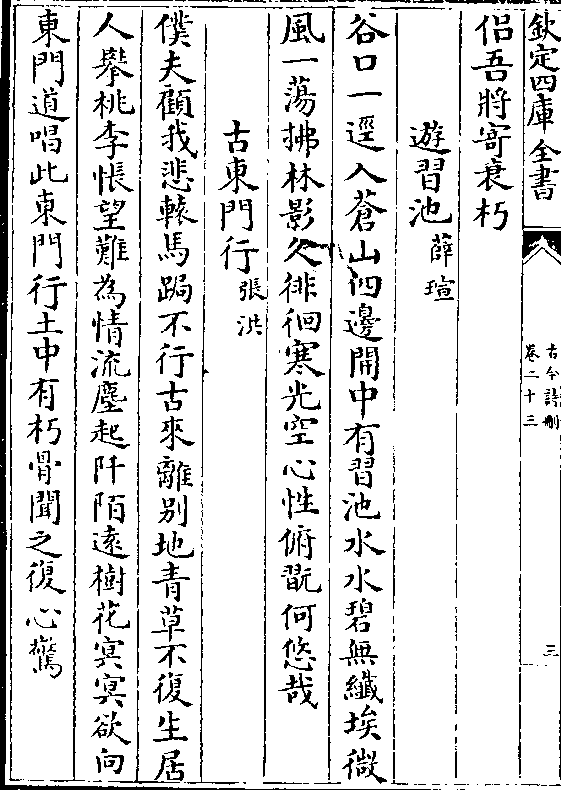 欽定四庫全書
古今詩刪
卷二十三
三
侣吾將寄衰朽
遊習池 薛瑄
谷口一逕入蒼山四邊開中有習池水水碧無纖埃微
風一蕩拂林影久徘徊寒光空心性俯翫何悠哉
古東門行 張洪
僕夫顧我悲轅馬跼不行古來離别地青草不復生居
人舉桃李悵望難為情流塵起阡陌逺樹花冥冥欲向
東門道唱此東門行土中有朽骨聞之復心驚